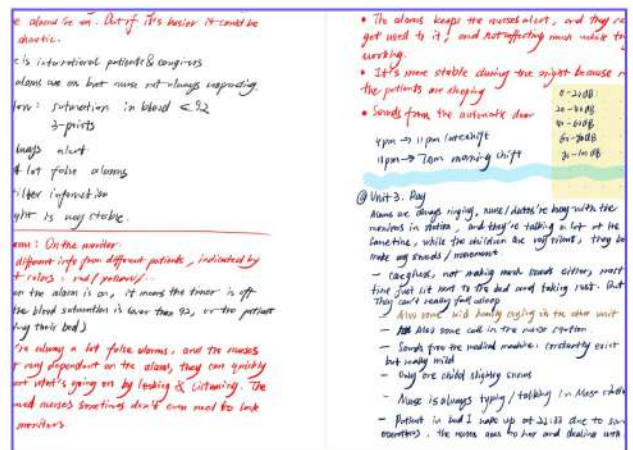 e alarms be on. But if it's busier it could be
chaotic.
e is international patients & caregivers
alarms are on but nurse not always responding.
saturation in blood < 92
3-points
ways alert
lot false alarms
filter information
ght is very stable.
arm: On the monitor.
different info from different patients, indicated by
t colors: red/yellow/...
on the alarm is on, it means the timer is off
the blood saturation is lower than 92, or the patient
their bed)
're always a lot false alarms, and the nurses
very dependent on the alarm, they can quickly
what's going on by looking & listening. The
nurses sometimes don't even need to look
monitors
• The alarms keeps the nurses alert, and they're
get used to it, and not affecting much while
working.
• It's more stable during the night because
the patients are sleeping
• Sounds from the automatic door
0-20dB
20-40dB
40-60dB
4pm → 11pm late shift
11pm → 7am morning shift
@ Unit 3. Day
Alarms are always ringing, nurse/doctors're busy with the
monitors in station, and they're talking a lot at the
same time, while the children are very silent, they
make any sounds/movement
- caregivers, not making much sounds either, most
time just sit next to the bed and taking rest. But
They can't really fall asleep
- Also some kid crying in the other unit
- Also some call in the nurse station.
- Sounds from the medical machine: constantly exist
but really mild
- Only one child slightly snores
- Nurse is always typing/talking in Nurse station
- Patient in bed 1 wake up at 22:33 due to
the nurses goes to her and dealing with